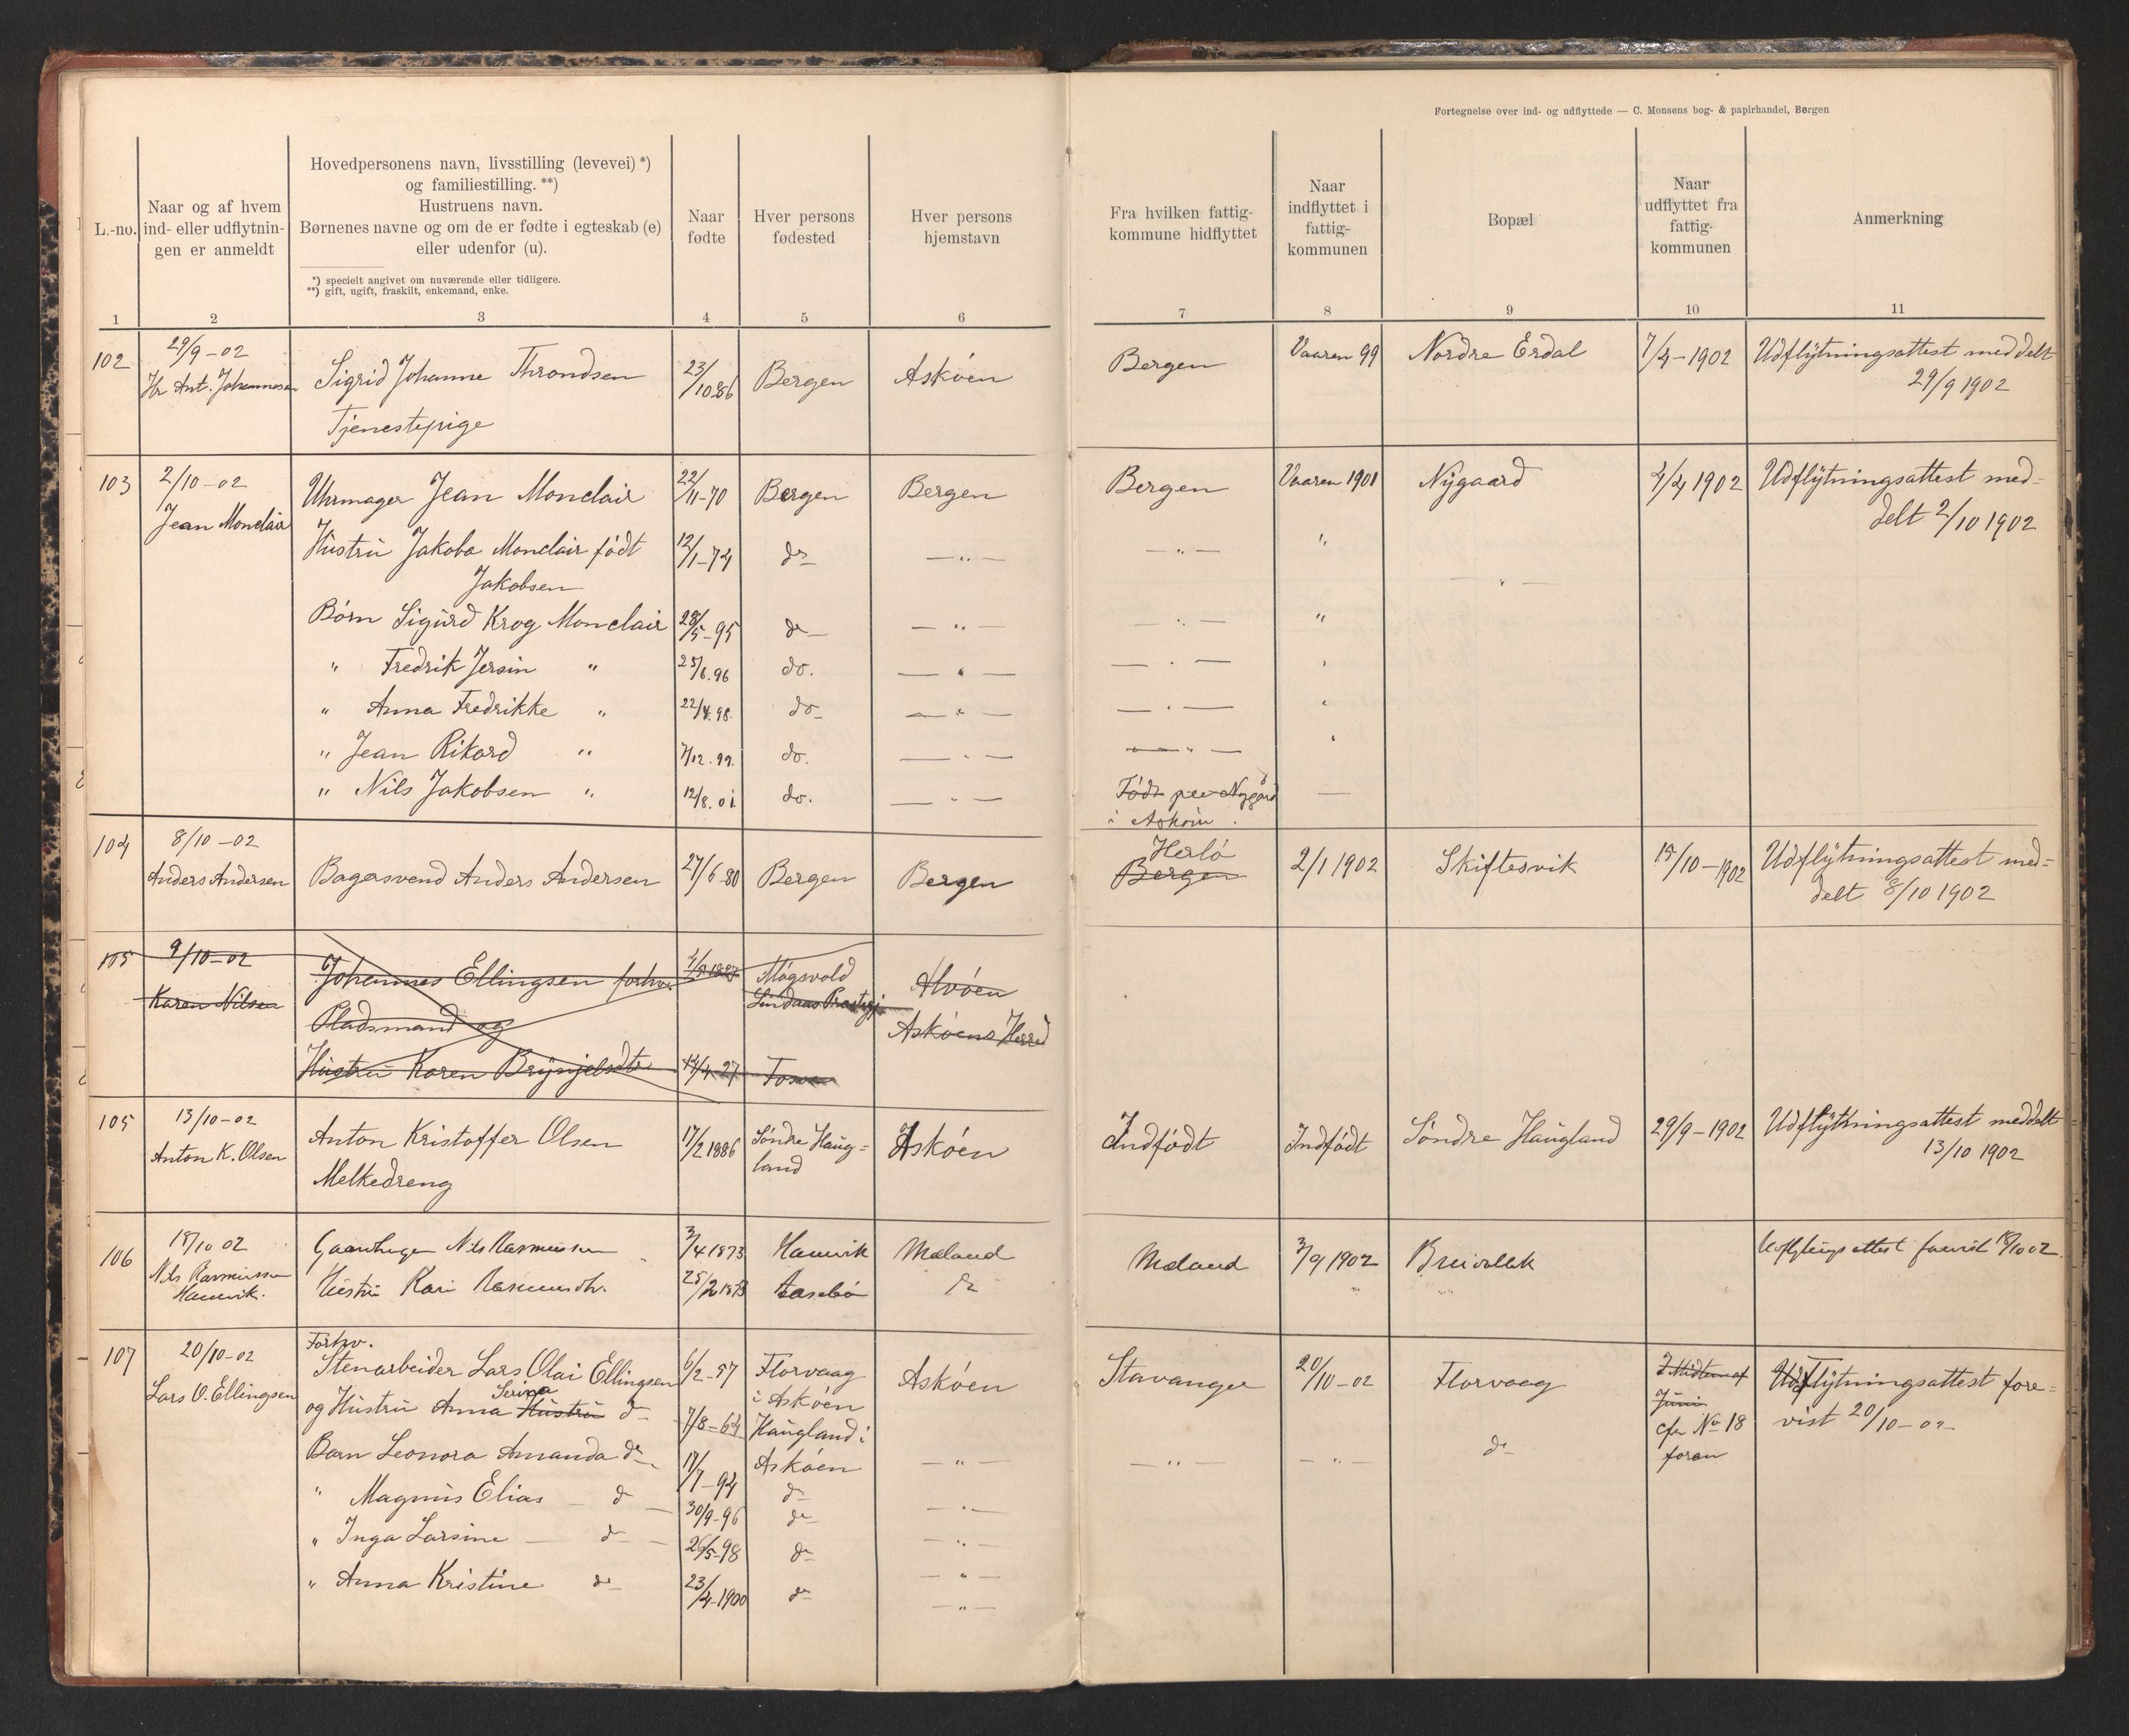 Fortegnelse over ind- og udflyttede — C. Monsens bog- & papirhandel, Bergen
L.-no.
Naar og af hvem
ind- eller udflytnin-
gen er anmeldt
Hovedpersonens navn, livsstilling (levevei) *)
og familiestilling. **)
Hustruens navn.
Børnenes navne og om de er fødte i egteskab (e)
eller udenfor (u).
*) specielt angivet om nuværende eller tidligere.
**) gift, ugift, fraskilt, enkemand, enke.
Naar
fødte
Hver persons
fødested
Hver persons
hjemstavn
Fra hvilken fattig-
kommune hidflyttet
Naar
indflyttet i
fattig-
kommunen
Bopæl
Naar
udflyttet fra
fattig-
kommunen
Anmerkning
1 2 3 4 5 6 7 8 9 10 11
102 29/9-02 Sigrid Johanne Throndsen 23/10 86 Bergen Askóen Bergen Vaaren 99 Nordre Erdal 7/4-1902 Udflytningsattest meddelt
Hr Ant. Johannesen Tjenestepige 29/9 1902
103 2/10-02 Uhrmager Jean Monclair 22/11-70 Bergen Bergen Bergen Vaaren 1901 Nygaard 4/4 1902 Udflytningsattest med-
Jean Monclair Hustru Jakoba Monclair født 12/1-74 do —"— —"— " delt 2/10 1902
Jakobsen —"—
Börn Sigurd Krog Monclair 28/5-95 do —"— —"— "
" Fredrik Jersin " 25/6.96 do. —"— —"— "
" Anna Fredrikke " 22/4.98. do —"— —"— "
" Jean Rikard " 7/12.99. do. —"— —"— "
" Nils Jakobsen " 12/8.01. do. —"— Född paa Nygård —
i Askóen.
104 8/10-02 Herló
Anders Andersen Bagersvend Anders Andersen 27/6-80 Bergen Bergen Bergen 2/1 1902 Skiftesvik 15/10-1902 Udflytningsattest med=
delt 8/10 1902
105 9/10-02 Johannes Ellingsen forhv. Mógsvold Alvóen
Karen Nilsen Pladsmand og Lindaas Askóens Herred
Hustru Karen 27
105 13/10-02 Anton Kristoffer Olsen 17/2 1886 Söndre Haug= Askóen Indfödt Indfödt Söndre Haugland 29/9-1902 Udflytningsattest meddelt
Anton K. Olsen Melkedreng land 13/10 1902
106 18/10 02 Nils Rasmussen 3/4 1873 Hamvik Meland Meland 3/9 1902 18/10 02
Nils Rasmussen Hustru Kari 25/2 1873 do
Hamvik.
107 20/10-02 Forhv.
Stenarbeider Lars Olai Ellingsen 6/2-57 Florvaag Askóen Stavanger 20/10-02 Florvaag Udflytningsattest fore=
Lars O. Ellingsen Serina i Askóen Juni vist 20/10-02
og Hustru Anna Hustru do 7/8-64 Haugland i cfr No 18
Barn Leonora Amanda do 17/7-94 Askóen —"— —"— —"— do foran
" Magnus Elias — do — 30/9-96 do —"—
" Inga Larsine — do — 26/5-98 do —"—
do
" Anna Kristine do 23/4-1900 do —"—
—"—